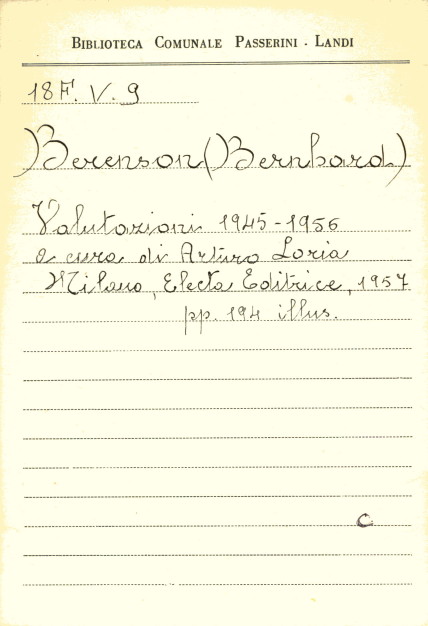 BIBLIOTECA COMUNALE PASSERINI - LANDI
18F. V. 9
Berenson (Bernhard)
Valutazioni 1945-1956
a cura di Arturo Loria
Milano, Electa Editrice, 1957
pp. 194 illus.
C